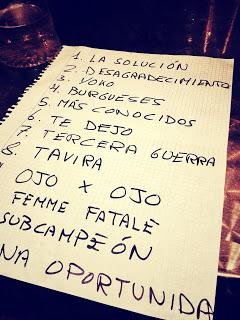 1. LA SOLUCIÓN
2. DESAGRADECIMIENTO
3. YOKO
4. BURGUESES
5. MÁS CONOCIDOS
6. TE DEJO
7. TERCERA GUERRA
8. TAVIRA
OJO X OJO
FEMME FATALE
SUBCAMPEÓN
NA OPORTUNIDA